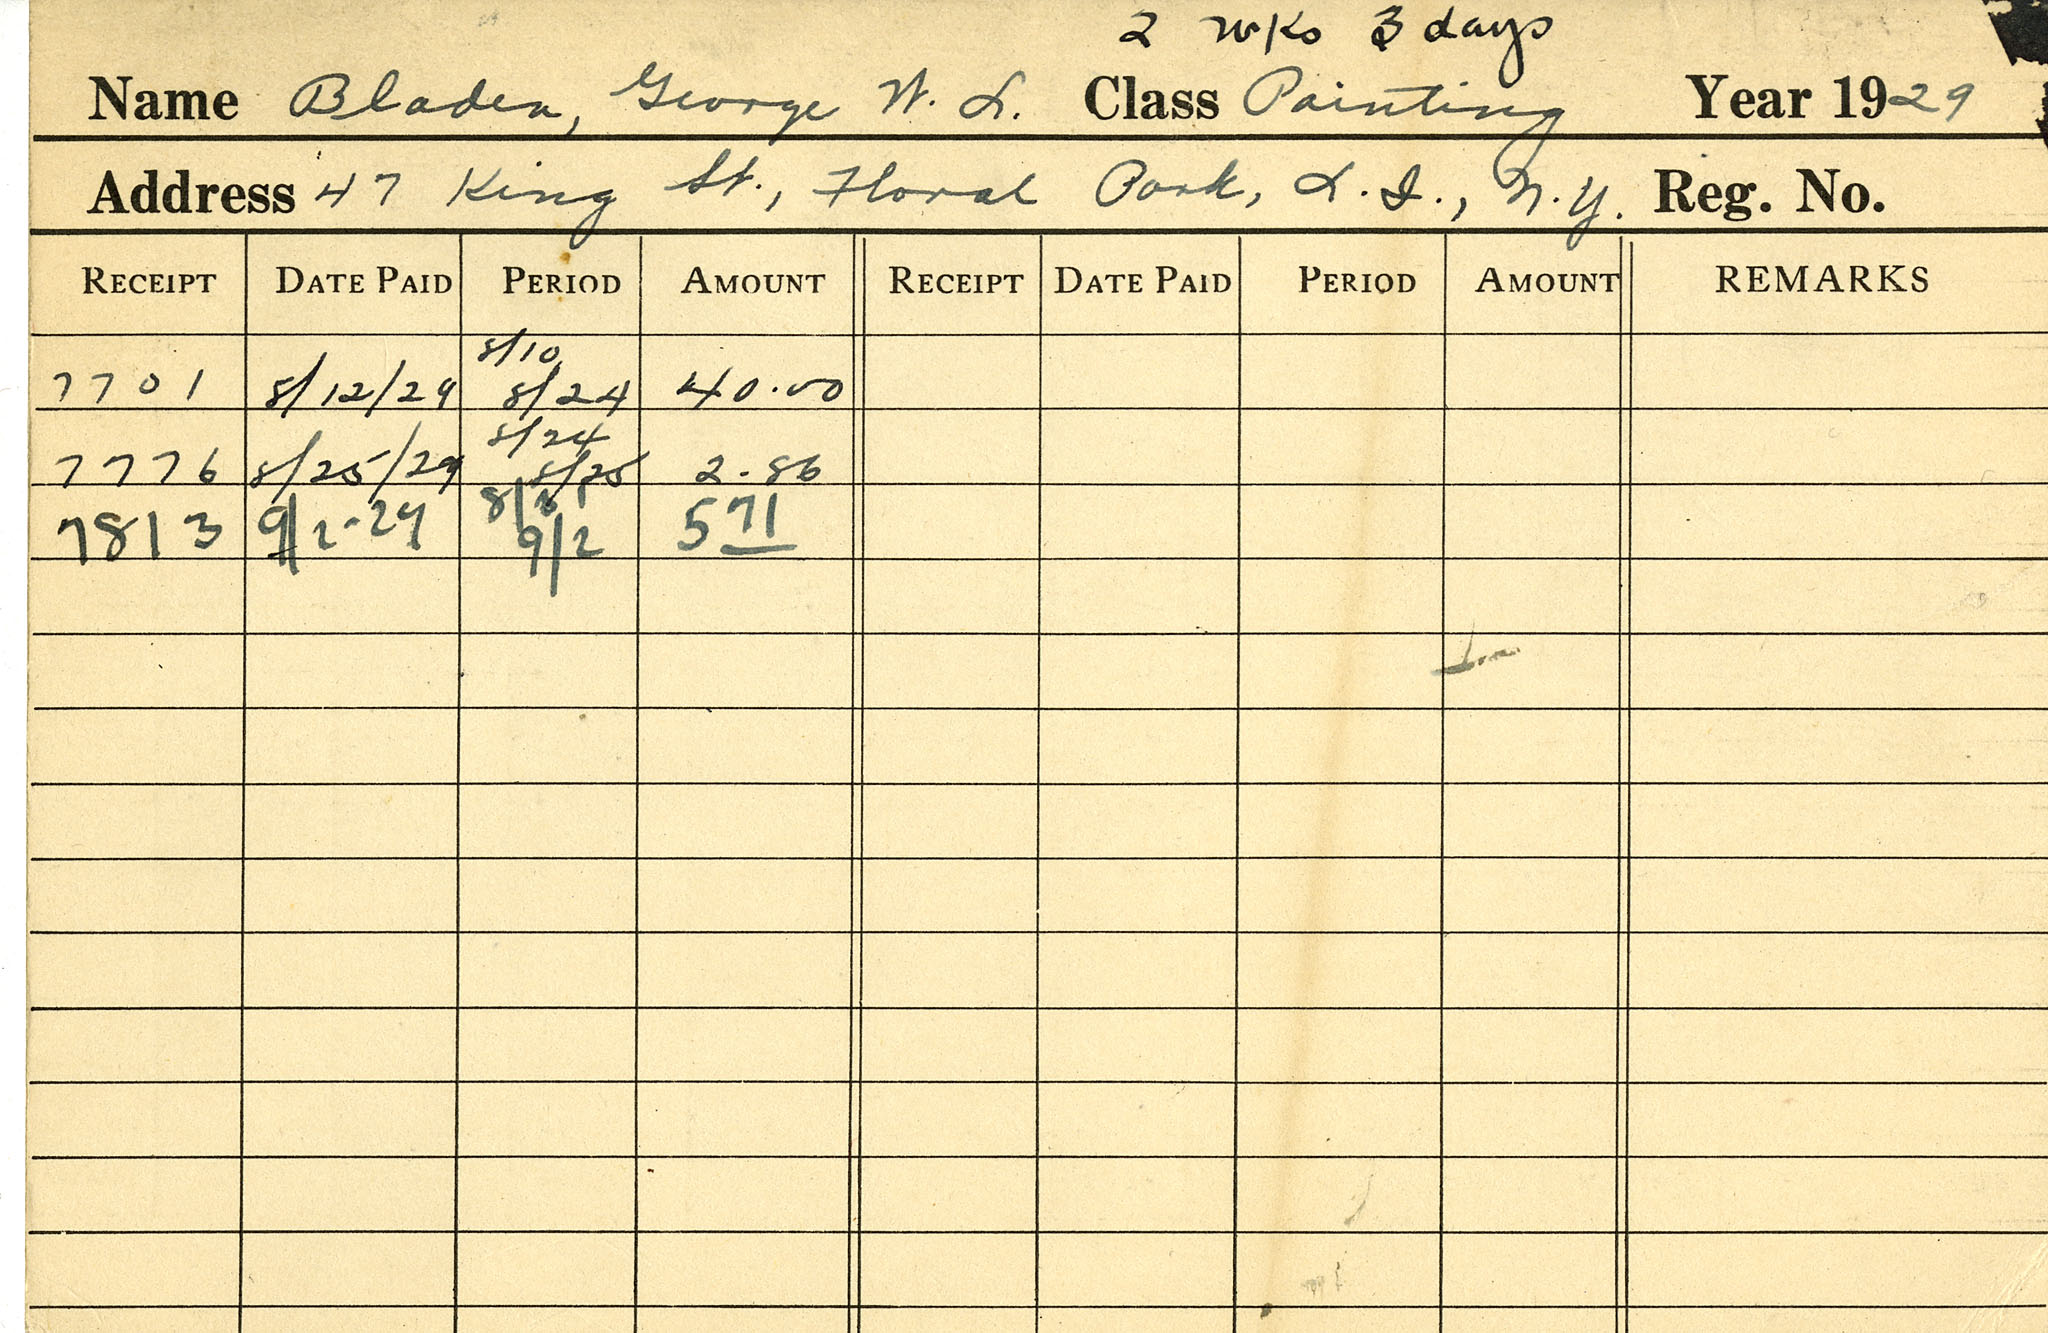 2 wks 3 days
Name Bladen, George W. L. Class Painting Year 1929
Address 47 King St., Floral Park, L. I., N.Y. Reg. No.
RECEIPT DATE PAID PERIOD AMOUNT RECEIPT DATE PAID PERIOD AMOUNT REMARKS
8/10
7701 8/12/29 8/24 40.00
8/24
7776 8/25/29 8/25 2.86
8/31
7813 9/2-29 9/2 5 71